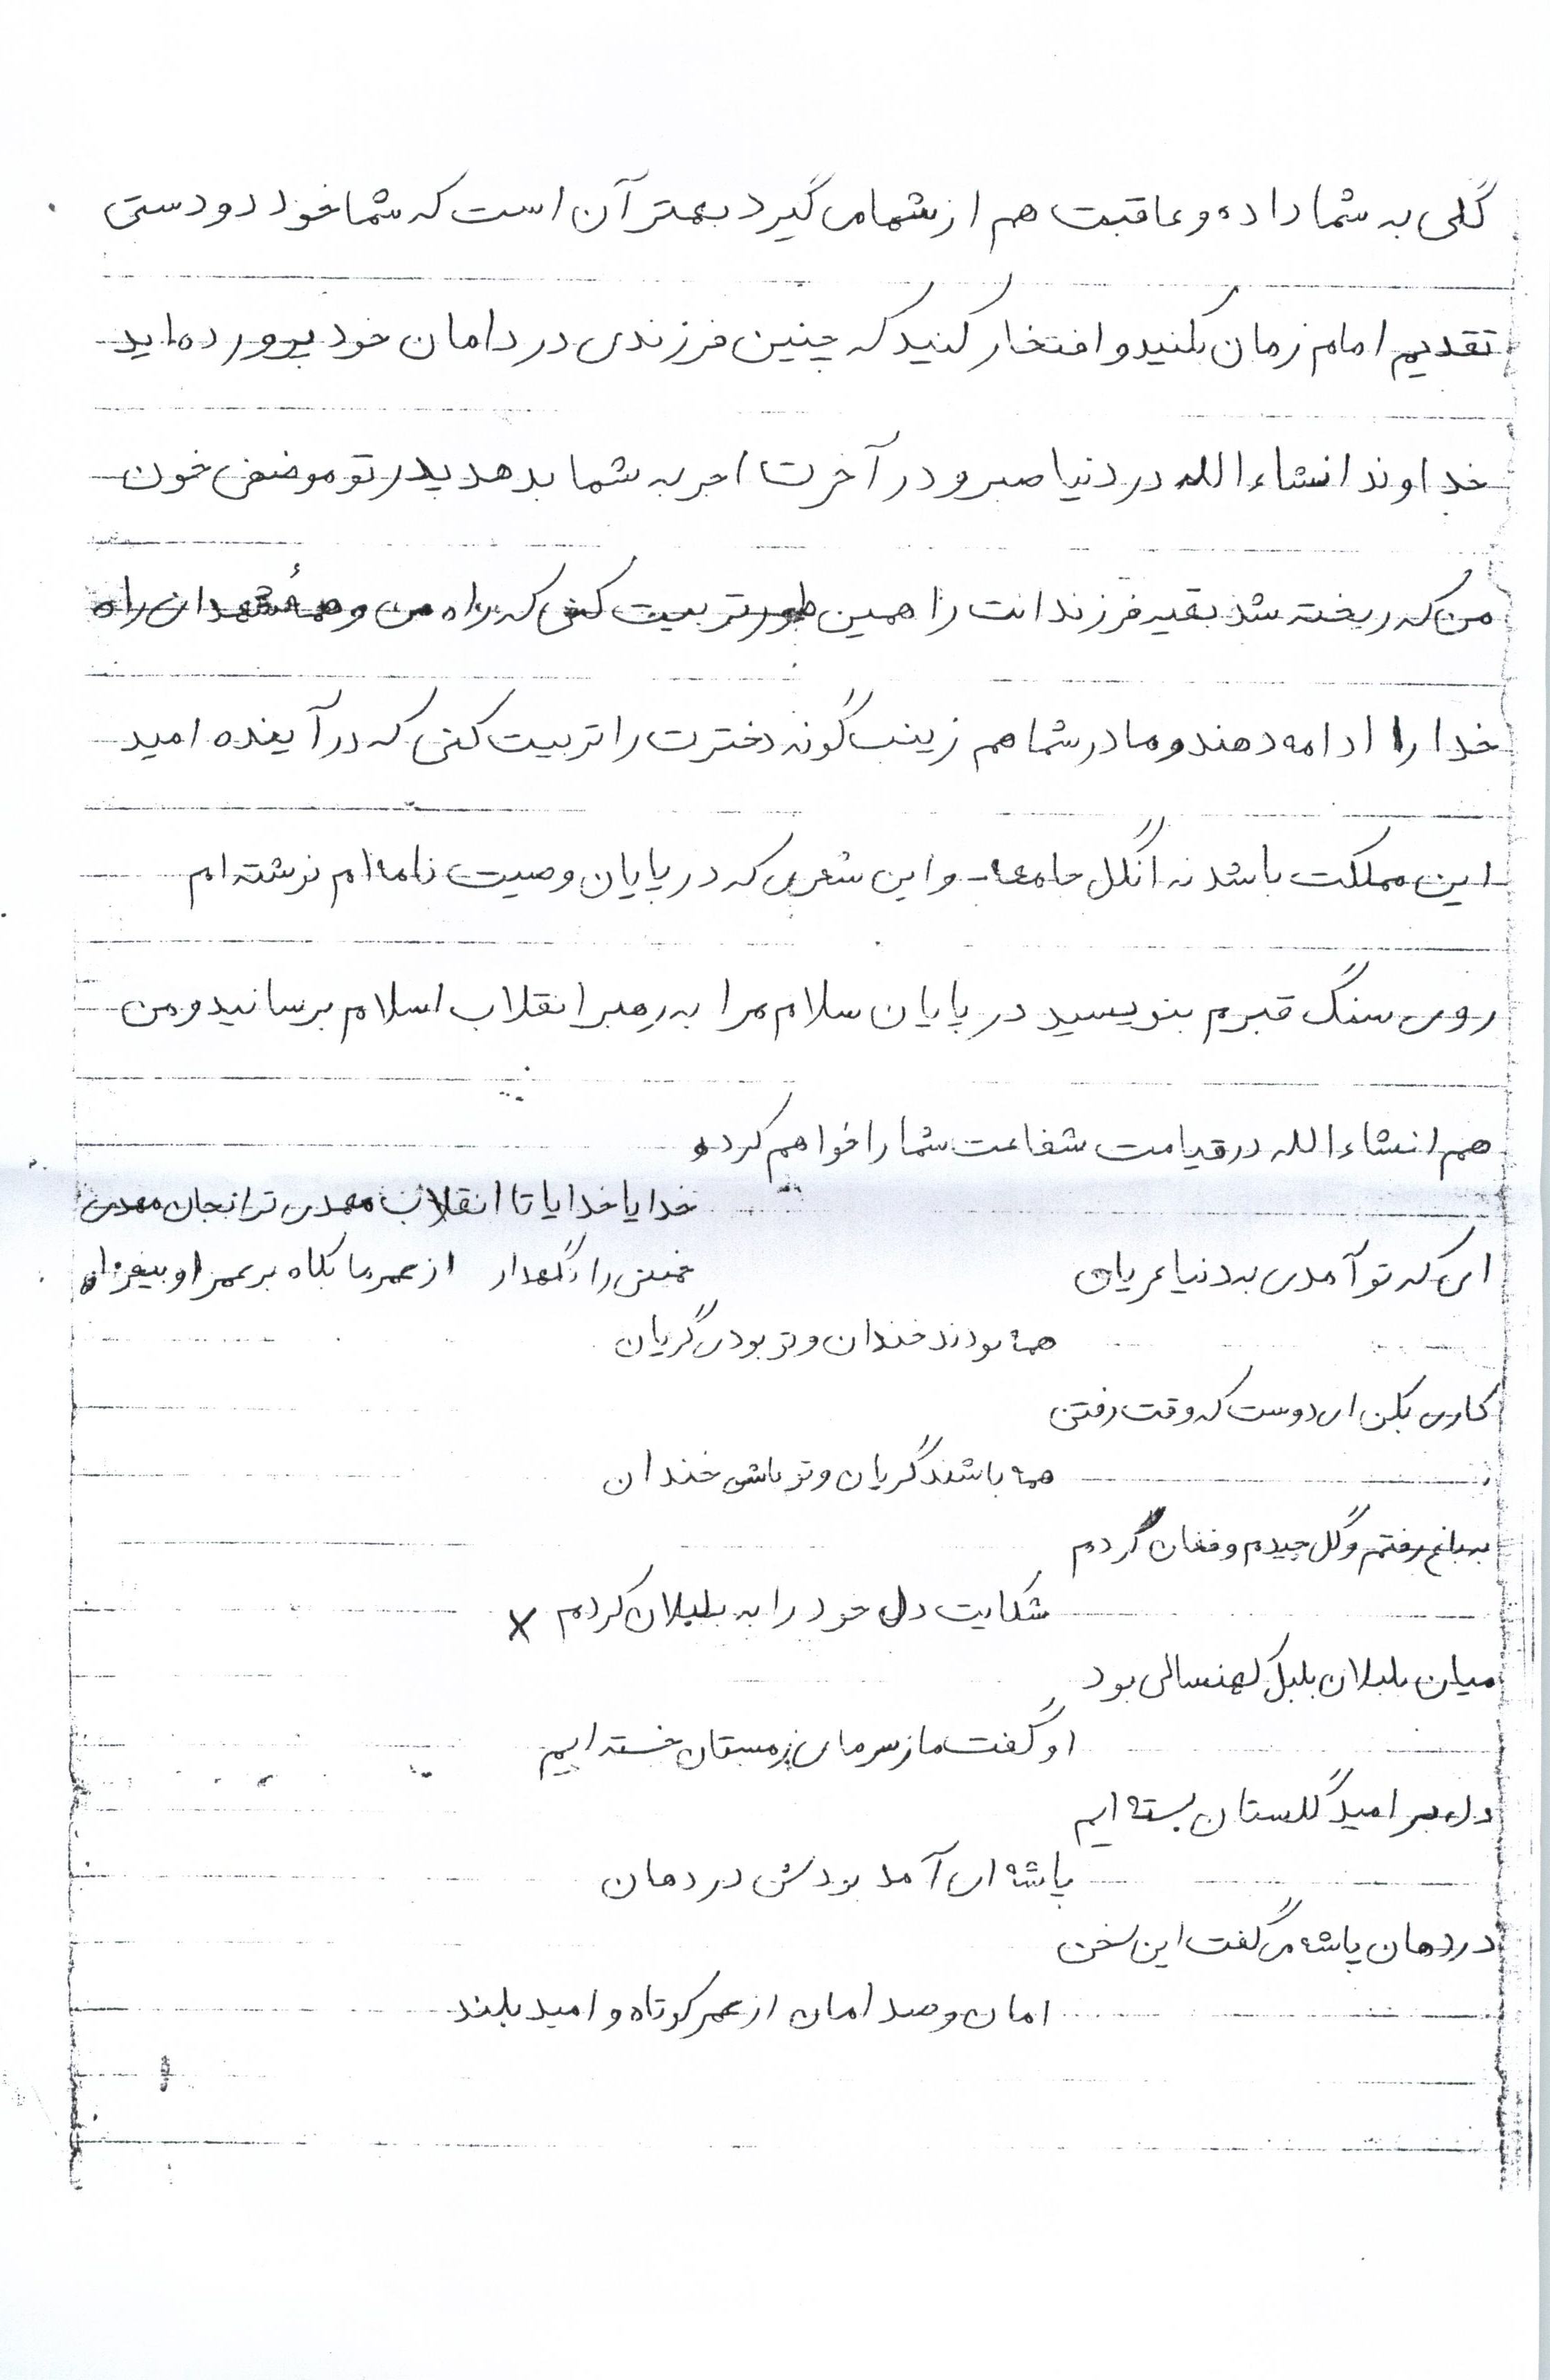 گلی به شما داده و عاقبت هم از شما می گیرد بهتر آن است که شما خود دو دستی
تقدیم امام زمان بکنید و افتخار کنید که چنین فرزندی در دامان خود پرورده اید
خداوند انشاء الله در دنیا صبر و در آخرت اجر به شما بدهد پدر تو موضفی خون
من که ریخته شد بقیه فرزندانت را همین طور تربیت کنی که راه من و همهٔ شهدا راه
خدا را ادامه دهند و مادر شما هم زینب گونه دخترت را تربیت کنی که در آینده امید
این مملکت باشد نه انگل جامعه - و این شعری که در پایان وصیت نامه ام نوشته ام
روی سنگ قبرم بنویسید در پایان سلام مرا به رهبر انقلاب اسلام برسانید و من
هم انشاء الله در قیامت شفاعت شما را خواهم کرد
خدایا خدایا تا انقلاب مهدی ترا بجان مهدی
خمینی را نگهدار از عمر ما بکاه بر عمر او بیفزا
ای که تو آمدی به دنیا عریان
همه بودند خندان و تو بودی گریان
کاری بکن ای دوست که وقت رفتن
همه باشند گریان و تو باشی خندان
به باغ رفتم و گل چیدم و فغان کردم
شکایت دل خود را به بلبلان کردم x
میان بلبلان بلبل کهنسالی بود
او گفت ما ز سرمای زمستان خسته ایم
دل بر امید گلستان بسته ایم
پاشه ای آمد بودش در دهان
در دهان پاشه می گفت این سخن
امان و صد امان از عمر کوتاه و امید بلند